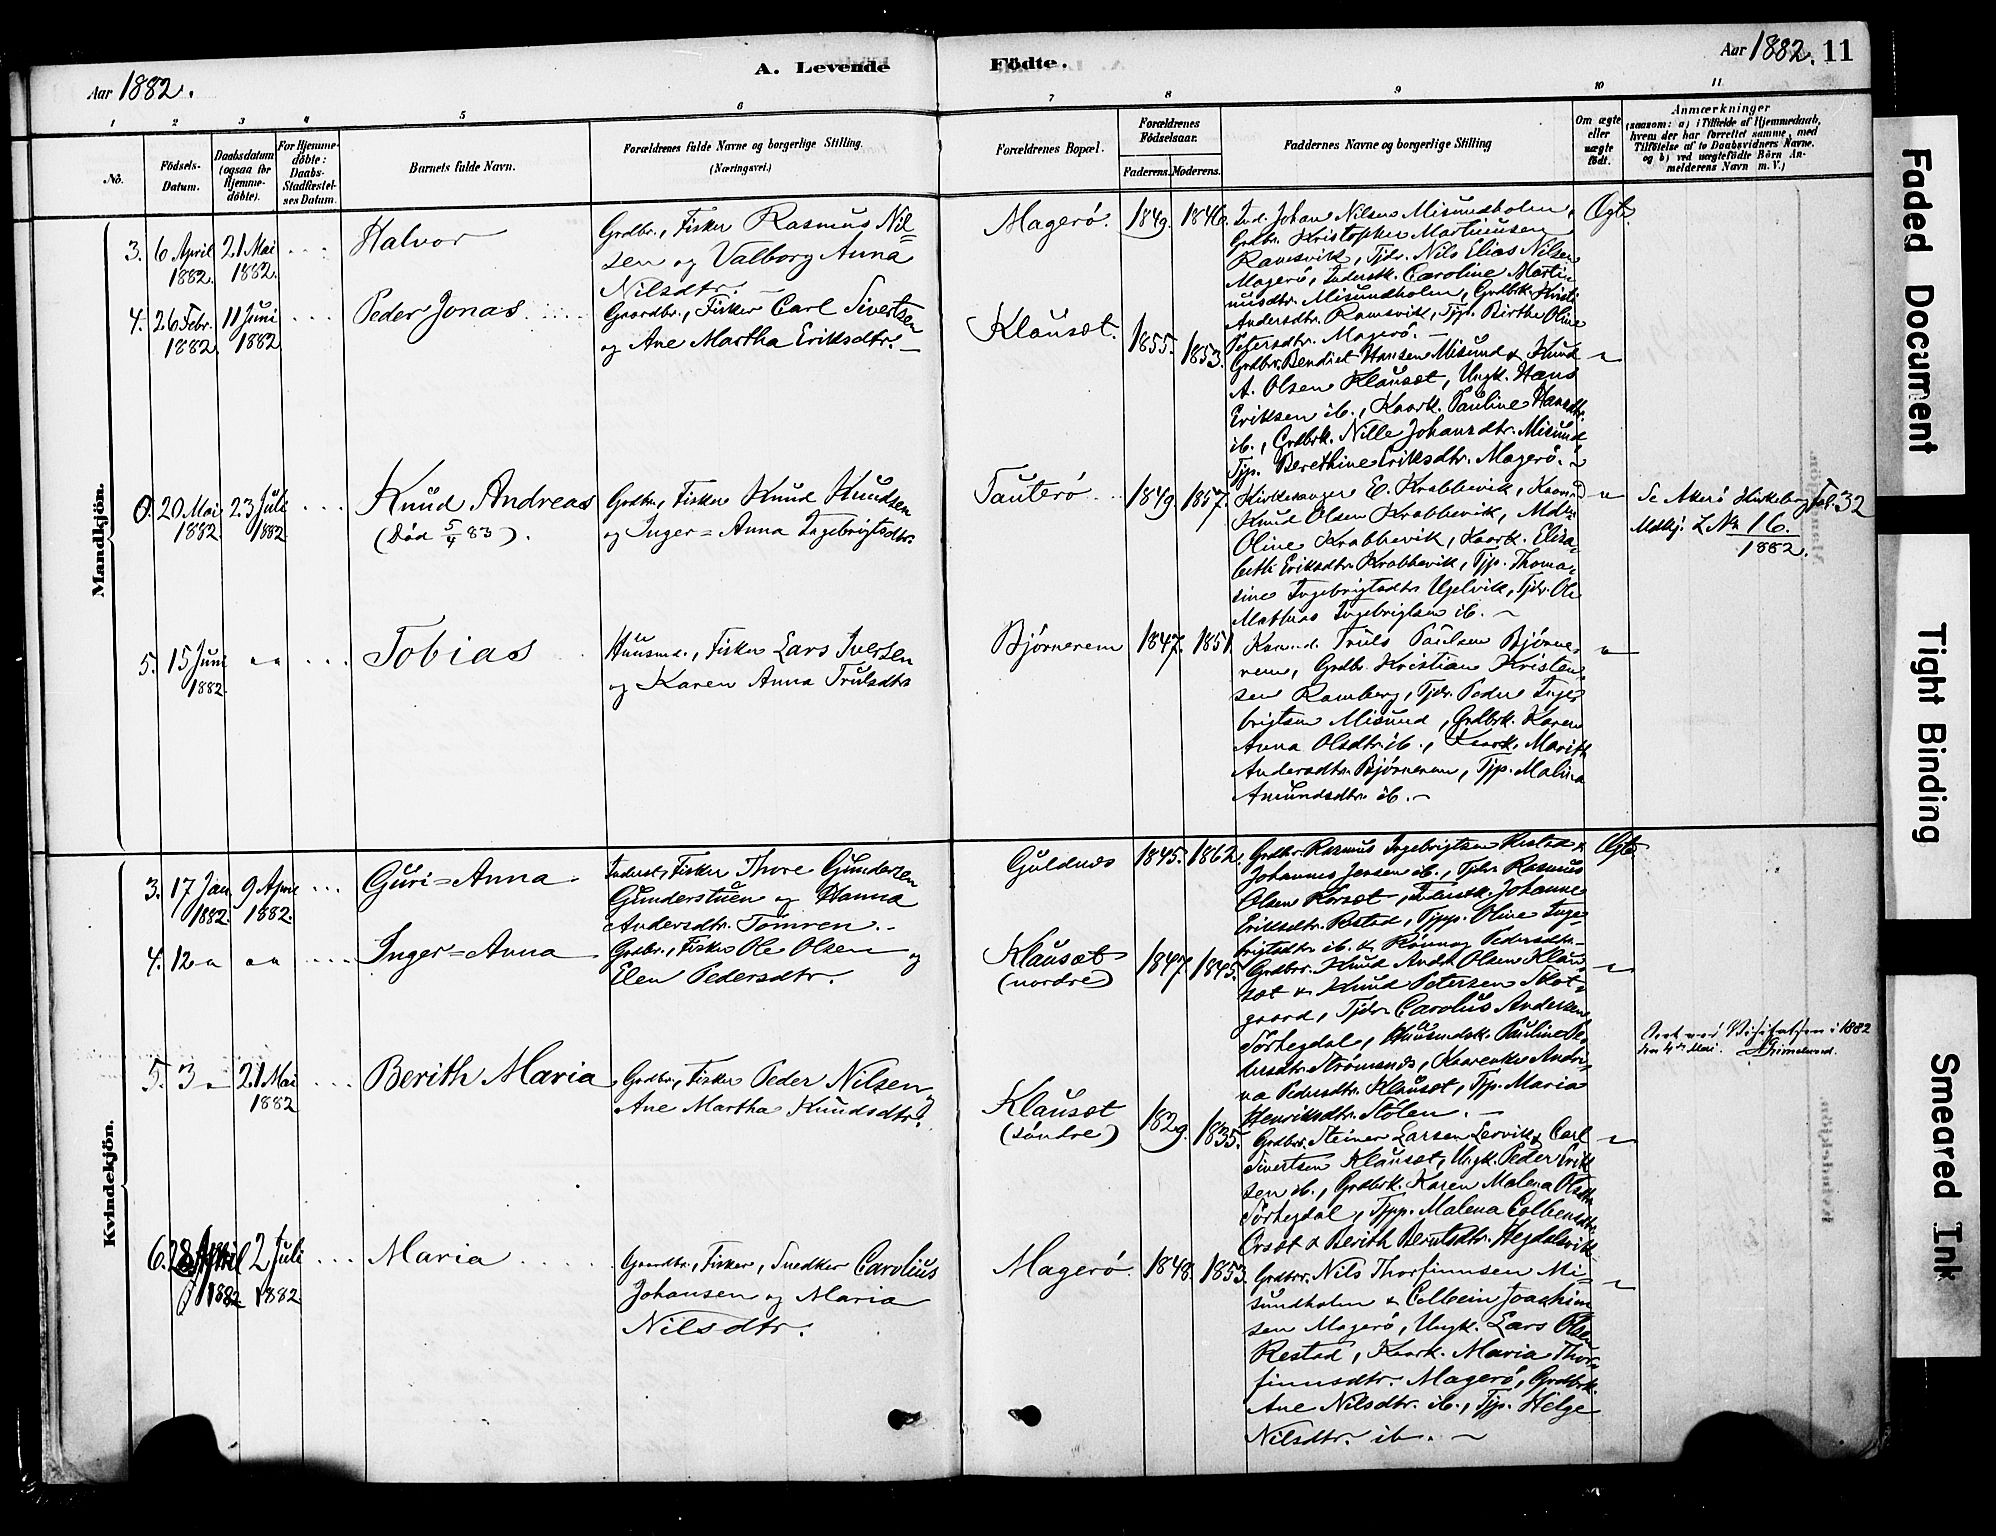 Aar 1882.
A. Levende
Födte.
Aar 1882. 11
1 2 3 4 5 6 7 8 9 10 11
No.
Födsels-Datum.
Daabsdatum (ogsaa for Hjemmedöbte).
For Hjemmedöbte: Daabs-Stadfæstelses Datum.
Barnets fulde Navn.
Forældrenes fulde Navne og borgerlige Stilling.
(Næringsvei.)
Forældrenes Bopæl.
Forældrenes Födselsaar.
Faderens. Moderens.
Faddernes Navne og borgerlige Stilling
Om ægte eller uægte födt.
Anmærkninger
(saasom: a) i Tilfælde af Hjemmedaab,
hvem der har forrettet samme, med
Tilföielse af to Daabsvidners Navne.
og b) ved uægtefödte Börn An-
melderens Navn m. V.)
Mandkjön.
3. 6 April 1882. 21 Mai 1882.
Halvor
Grdbr., Fisker Rasmus Nil=
sen og Valborg Anna
Nilsdtr.
Magerö. 1849. 1846.
Ind. Johan Nilsen Misundholm,
Grdbr. Kristopher Martinusen
Ramsvik, Tjdr. Nils Elias Nilsen
Magerö, Inderstk. Caroline Marti-
nusdtr. Misundholm, Grdbrk. Kristi
Andersdtr. Ramsvik, Tjp. Birthe Oline
Petersdtr. Magerö. —
Ægte
4. 26 Febr. 1882. 11 Juni 1882
Peder Jonas
Gaardbr., Fisker Carl Sivertsen
og Ane Martha Eriksdtr. —
Klauset. 1855. 1853.
Grdbr. Bendict Hansen Misund & Knud
A. Olsen Klauset, Ungk. Hans
Eriksen ib., Kaark. Pauline Hansdtr.
ib., Grdbrk. Nille Johansdtr. Misund,
Tjp. Berethine Eriksdtr. Magerö. —
0. 20 Mai 1882. 23 Juli 1882
Knud Andreas
(Död 5/4 83).
Grdbr., Fisker Knud Knudsen
og Inger=Anna Ingebrigtsdtr.
Tauterö. 1849 1857.
Kirkesanger E. Krabbevik, Kaarmd
Knud Olsen Krabbevik, Mdm
Oline Krabbevik, Kaark. Elisa-
beth Eriksdtr. Krabbevik, Tjp. Thoma-
sine Ingebrigtsdtr. Ugelvik, Tjdr. Ole
Mathias Ingebrigtsen ib. —
Se Akerö Kirkebog Fol. 32
Mdkj. L No 16.
1882.
5. 15 Juni 1882.
Tobias
Huusmd., Fisker Lars Iversen
og Karen Anna Trulsdtr.
Björnerem 1847. 1851
Kaarmd. Truls Paulsen Björne-
rem, Grdbr. Kristian Kristen-
sen Ramberg, Tjdr. Peder Inge-
brigtsen Misund, Grdbrk. Karen
Anna Olsdtr. ib., Kaark. Marith
Andersdtr. Björnerem, Tjp. Malina
Amundsdtr. ib. —
Kvindekjön.
3. 17 Jan. 1882. 9 April 1882.
Guri=Anna
Inderst, Fisker Thore Gundersen
Gunderstuen og Hanna
Andersdtr. Tömren.
Guldnæs 1845. 1862.
Grdbr. Rasmus Ingebrigtsen Restad &
Johannes Jensen ib., Tjdr Rasmus
Olsen Korset, Inderstk. Johanne
Eriksdtr. Restad, Tjpp. Oline Inge-
brigtsdtr. ib. & Rönnog Pedersdtr.
Ægte
4. 12
Inger=Anna
Grdbr., Fisker Ole Olsen og
Elen Pedersdtr.
Klauset (nordre) 1847. 1845.
Grdbr. Knud Andr. Olsen Klau-
set & Knud Petersen Skot-
gaard, Tjdr. Carolus Andersen
Törhegdal, Huusmdsk. Pauline Pe-
dersdtr. Strömsnæs, Kaarenke Andri-
na Pedersdtr. Klauset, Tjp. Maria
Henriksdtr. Stölen. —
den 4de Mai.
5. 3 21 Mai 1882
Berith Maria
Grdbr., Fisker Peder Nilsen
Ane Martha Knudsdtr.
Klauset (söndre) 1829. 1835.
Grdbr. Steiner Larsen Lervik & Carl
Sivertsen Klauset, Ungk. Peder Erik-
sen ib., Grdbrk. Karen Malena Olsdtr.
Törhegdal, Tjpp. Malena Colbensdtr.
Orset & Berith Berntsdtr. Hegdalsvik
6. 28 April 1882 2 Juli 1882
Maria
Gaardbr., Fisker, Snedker Carolius
Johansen og Maria
Nilsdtr.
Magerö. 1848. 1853.
Grdbr. Nils Thorfinnsen Mi-
sundholm & Colbein Joachim-
sen Magerö, Ungk. Lars Olsen
Restad, Kaark. Maria Thor-
finnsdtr. Magerö, Grdbrk.
Ane Nilsdtr. ib., Tjp. Helge
Nilsdtr. ib. —
Faded Document
Tight Binding
Smeared Ink